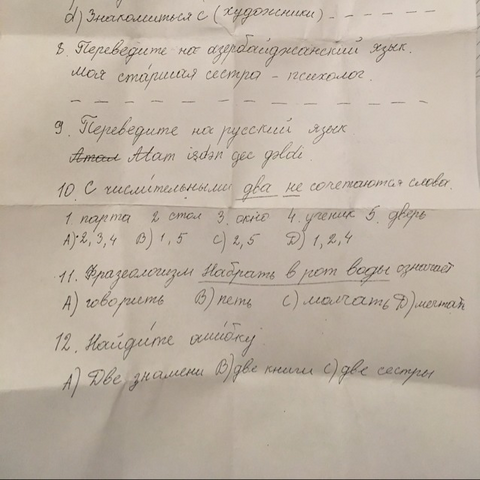 d) Знакомиться с (художники) - - - - -
8. Переведите на азербайджанский язык.
Моя ста́ршая сестра - психолог.
- - - - - - - - - - - -
9. Переведите на русский язык
Атам Atam işdən gec gəldi.
10. С числи́тельными два не сочетаются слова.
1 парта 2 стол 3. окно 4. ученик 5. дверь
A) 2,3,4 B) 1,5 C) 2,5 D) 1,2,4
11. Фразеологизм Набрать в рот воды означает
A) говорить B) петь C) молчать D) мечтать
12. Найди́те оши́бку.
A) Две знамени B) две книги C) две сестры